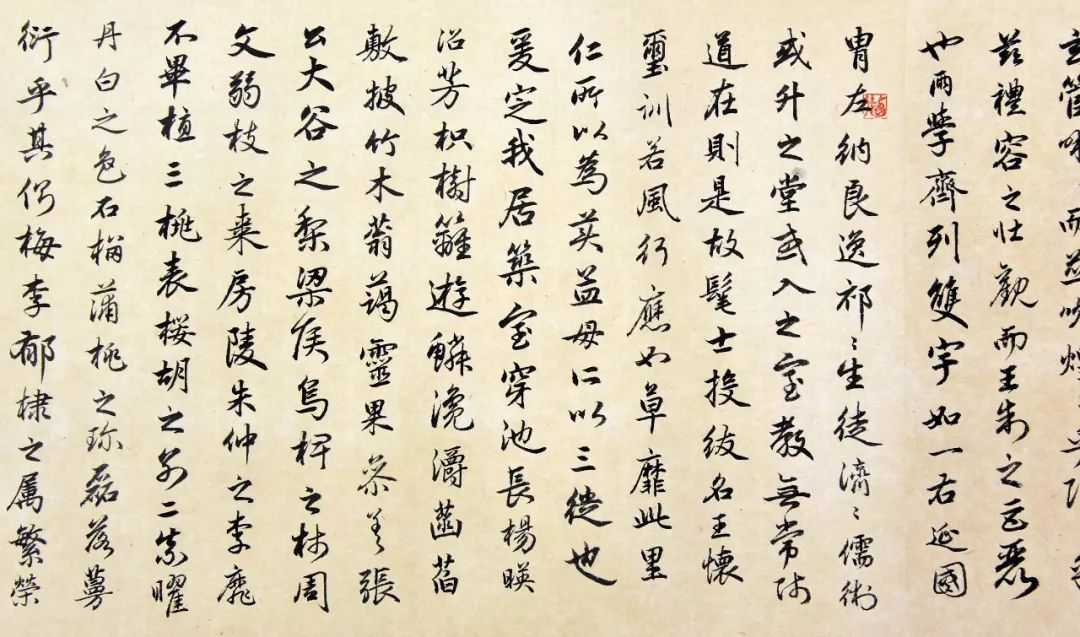 管啾而並吹煌
茲禮容之壯觀而王制之巨麗
也兩學齊列雙宇如一右延國
胄左納良逸祁〻生徒濟〻儒術
或升之堂或入之室教無常師
道在則是故髦士投紱名王懷
璽訓若風行應如草靡此里
仁所以為美孟母所以三徙也
爰定我居築室穿池長楊映
沼芳枳樹籬遊鱗瀺灂菡萏
敷披竹木蓊藹靈果參差張
公大谷之梨梁侯烏椑之柿周
文弱枝之棗房陵朱仲之李靡
不畢植三桃表櫻胡之別二柰曜
丹白之色石榴蒲桃之珍磊落蔓
衍乎其側梅李郁棣之屬繁榮